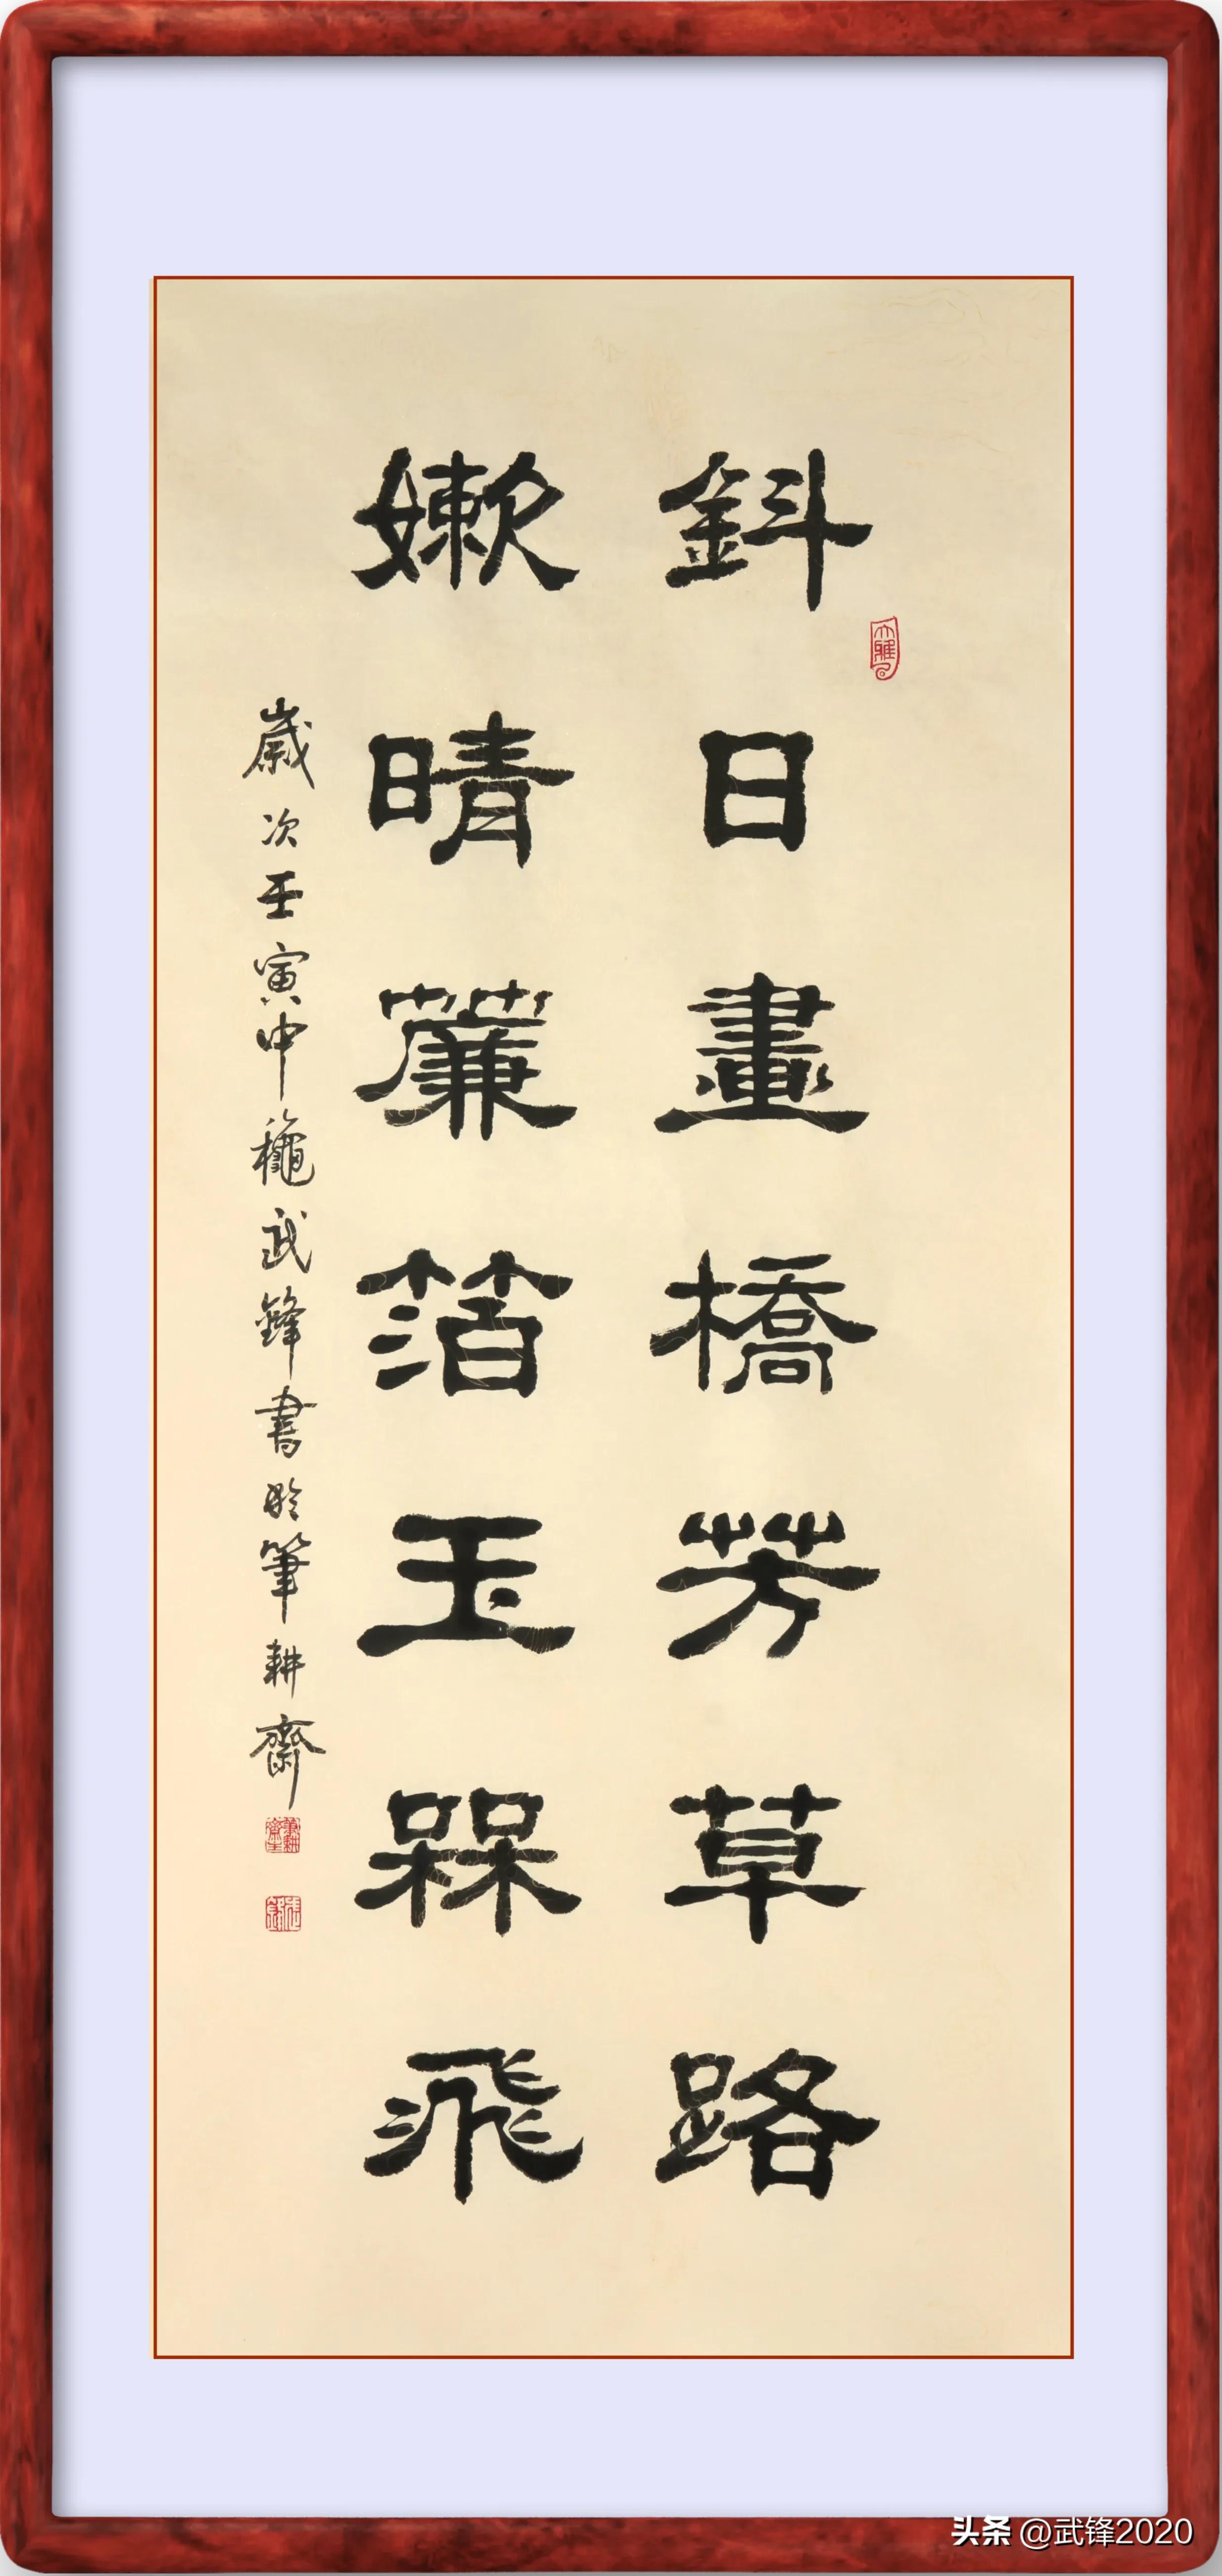 斜日畫橋芳草路
嫩晴簾箔玉槑飛
歲次壬寅中龝武鋒書於筆耕齋
头条 @武锋2020